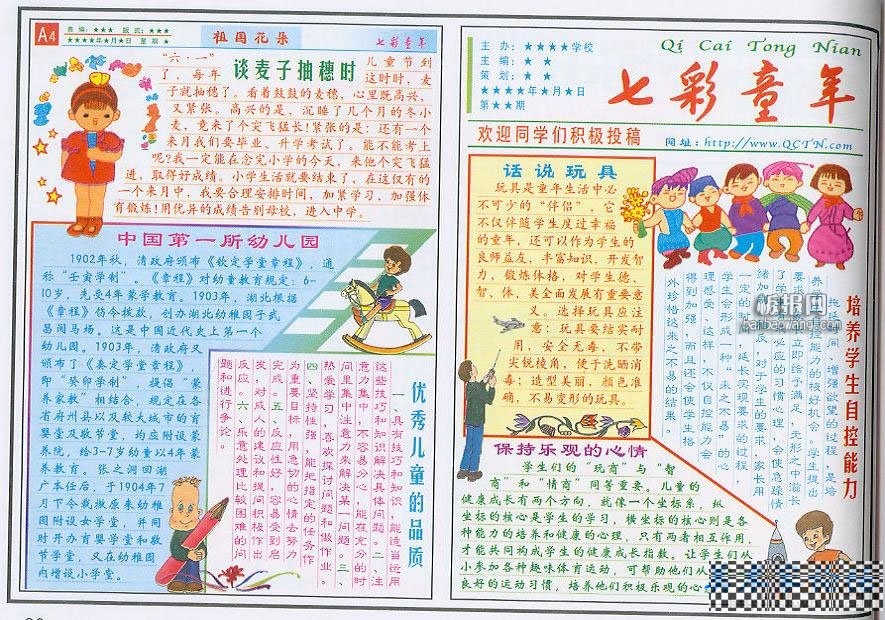 A4
责编：★★★ 版式：★★★
★★★★年★月★日 星期★
祖国花朵
七彩童年
谈麦子抽穗时
“六·一”儿童节到
了，每年这时时，麦
子就抽穗了。看着鼓鼓的麦穗，心里既高兴，
又紧张。高兴的是，沉睡了几个月的冬小
麦，竟来了个突飞猛长！紧张的是：还有一个
来月我们要毕业、升学考试了。能不能考上
呢？我一定能在念完小学的今天，来他个突飞猛
进，取得好成绩。小学生活就要结束了，在这仅有的
一个来月中，我要合理安排时间，加紧学习，加强体
育锻炼！用优异的成绩告别母校，进入中学。
中国第一所幼儿园
1902年秋，清政府颁布《钦定学堂章程》，通
称“壬寅学制”。《章程》对幼童教育规定：6-
10岁，先受4年蒙学教育。1903年，湖北根据
《章程》仿令拔款，创办湖北幼稚园于武
昌阅马场。这是中国近代史上第一个
幼儿园，1903年，清政府又
颁布了《奏定学堂章程》，
即“癸卯学制”，提倡“蒙
养家教”相结合，规定在各
省府州县以及较大城市的育
婴堂及敬节堂，均应附设蒙
养院，给3-7岁幼童以4年蒙
养教育。张之洞回湖
广本任后，于1904年7
月下令裁撤原来幼稚
园附设女学堂，并同
时开办育婴学堂和敬
节学堂，又在幼稚园
内增设小学堂。
优秀儿童的品质
一、具有技巧和知识，能适当运用
这些技巧和知识解决具体问题。二、注
意力集中，不容易分心，能在充分的时
间里集中注意力来解决某一问题。三、
热爱学习，喜欢探讨问题和做作业。
四、坚持性强，能把指定的任务作
为重要目标，用急切的心情去努力
完成。五、反应性好，容易受到启
发，对成人的建议和提问积极作出
反应。六、乐意处理比较困难的问
题和进行争论。
主办：★★★★学校
主编：★ ★
策划：★ ★
★★★★年★月★日
第★★期
Qi Cai Tong Nian
七彩童年
欢迎同学们积极投稿
网址：http://www.QCTN.com
话说玩具
玩具是童年生活中必
不可少的“伴侣”，它
不仅伴随学生度过幸福
的童年，还可以作为学生的
良师益友，丰富知识，开发智
力，锻炼体格，对学生德、
智、体、美全面发展有重要意
义。选择玩具应注
意：玩具要结实耐
用，安全无毒，不带
尖锐棱角，便于洗晒消
毒；造型美丽，颜色准
确，不易变形的玩具。
培养学生自控能力
拖延时间，增强欲望的过程，是培
养学生自控能力的极好机会。学生提出
要求，立即给予满足，无形之中滋长
了学
必应的习惯心理，会使急躁情
绪加
反，对于学生的要求，家长用
一定的时
，延长实现要求的过程，
学生会形成一种“来之不易”的心
理感受，这样，不仅自控能力会
得到加强，而且还会使学生格
外珍惜这来之不易的结果。
板报网
banbaowang.com
保持乐观的心情
学生们的“玩商”与“智
商”和“情商”同等重要。儿童的
健康成长有两个方向，就像一个坐标系，纵
坐标的核心是学生的学习，横坐标的核心则是各
种能力的培养和健康的心理，只有两者相互作用，
才能共同构成学生的健康成长指数。让学生们从
小参加各种趣味体育运动，可帮助他们从
良好的运动习惯，培养他们积极乐观的心